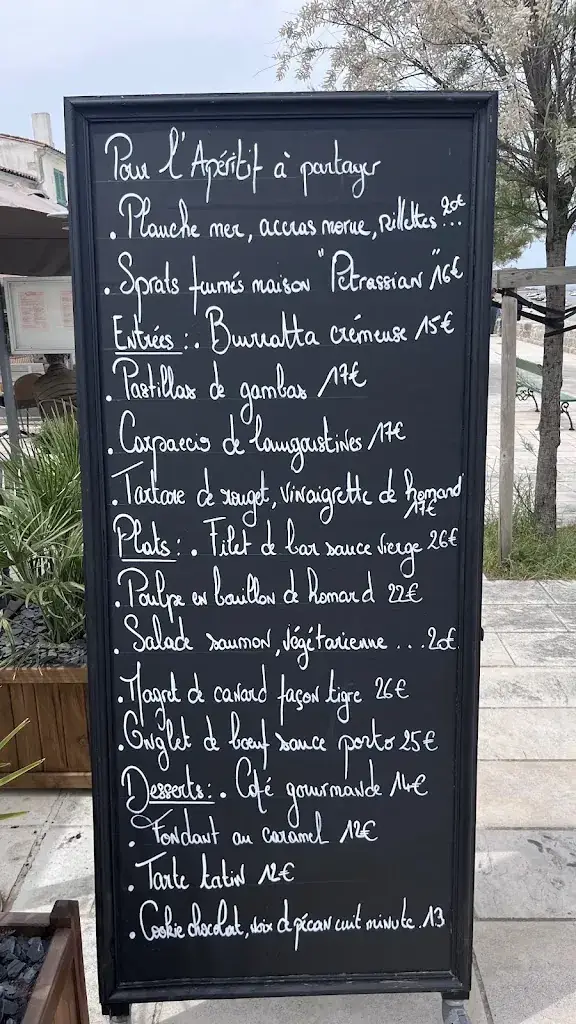 Pour l'Apéritif à partager
. Planche mer, accras morue, Rillettes ... 20€
. Sprats fumés maison "Petrassian" 16€
Entrées : . Burratta crémeuse 15€
. Pastillas de gambas 17€
. Carpaccio de laungoustines 17€
. Tartare de rouget, vinaigrette de homard 17€
Plats : . Filet de bar sauce vierge 26€
. Poulpe en bouillon de homard 22€
. Salade saumon, végétarienne ... 20€
. Magret de canard façon tigre 26€
. Onglet de bœuf sauce porto 25€
Desserts : . Café gourmande 14€
. Fondant au caramel 12€
. Tarte tatin 12€
. Cookie chocolat, noix d pécan cuit minute . 13